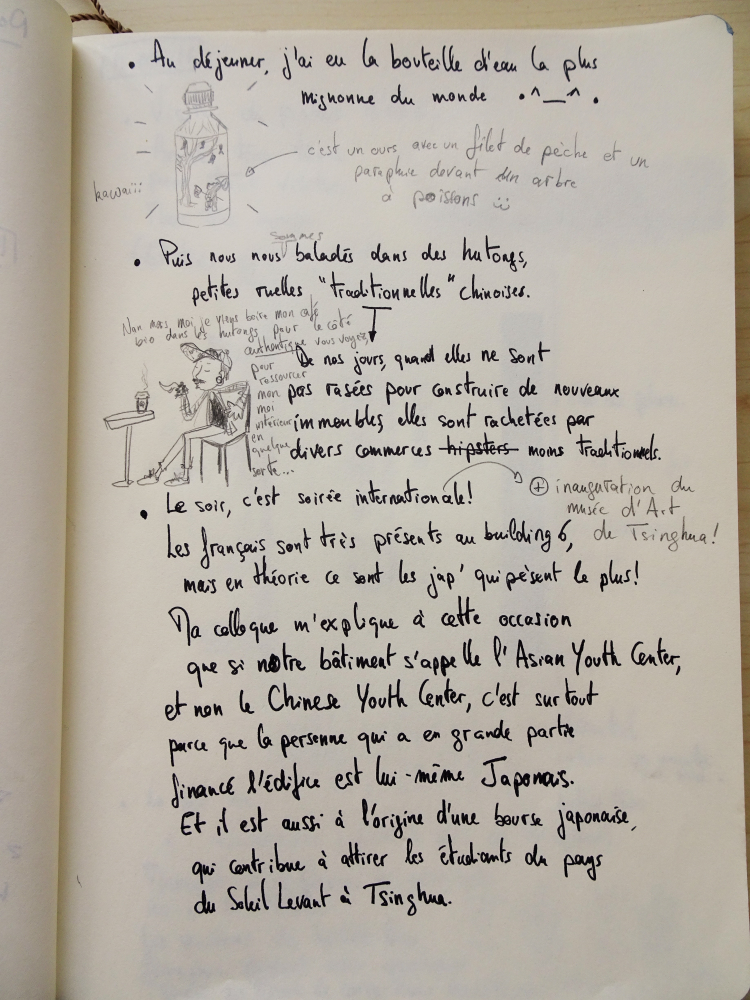 • Au déjeuner, j'ai eu la bouteille d'eau la plus
mignonne du monde •^__^•
c'est un ours avec un filet de pêche et un
parapluie devant un arbre
à poissons
kawaiii
• Puis nous nous sommes baladés dans des hutongs,
petites ruelles "traditionnelles" chinoises.
Nan mais moi je viens boire mon café
bio dans les hutongs pour le côté
authentique vous voyez,
pour
ressourcer
mon
moi
intérieur
en
quelque
sorte...
De nos jours, quand elles ne sont
pas rasées pour construire de nouveaux
immeubles, elles sont rachetées par
divers commerces hipsters moins traditionnels.
• Le soir, c'est soirée internationale!
+ inauguration du
musée d'Art
de Tsinghua!
Les français sont très présents au building 6,
mais en théorie ce sont les jap' qui pèsent le plus!
Ma colloque m'explique à cette occasion
que si notre bâtiment s'appelle l'Asian Youth Center,
et non le Chinese Youth Center, c'est surtout
parce que la personne qui a en grande partie
financé l'édifice est lui-même Japonais.
Et il est aussi à l'origine d'une bourse japonaise,
qui contribue à attirer les étudiants du pays
du Soleil Levant à Tsinghua.